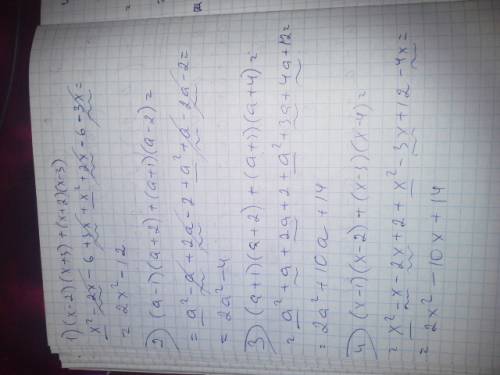 1) (x-2)(x+3) + (x+2)(x-3)
x²-2x-6+3x+x²+2x-6-3x=
= 2x²-12
2) (a-1)(a+2)+(a+1)(a-2)=
= a²-a+2a-2+a²+a-2a-2=
= 2a²-4
3) (a+1)(a+2)+(a+3)(a+4)=
= a²+a+2a+2+a²+3a+4a+12=
= 2a²+10a+14
4) (x-1)(x-2)+(x-3)(x-4)=
= x²-x-2x+2+x²-3x+12-4x=
= 2x²-10x+14